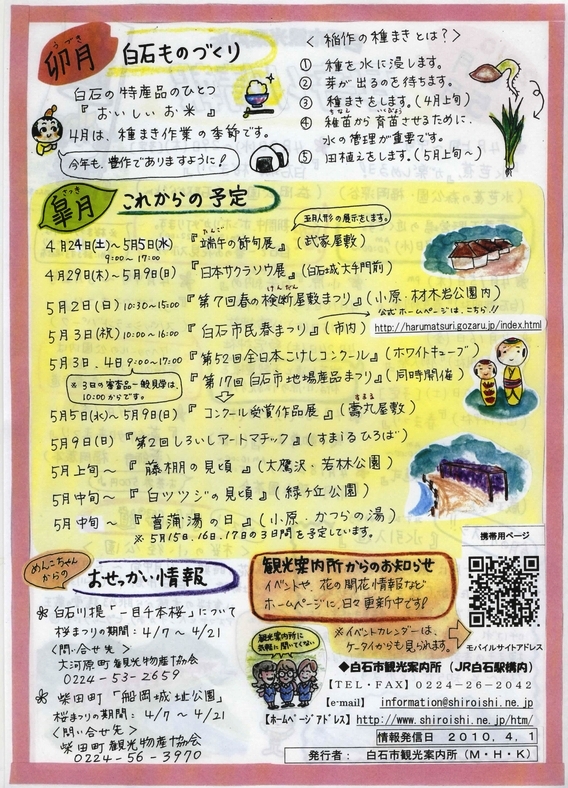 うづき
卯月
白石ものづくり
白石の特産品のひとつ
『おいしいお米』
4月は、種まき作業の季節です。
今年も、豊作でありますように!
＜稲作の種まきとは?＞
① 種を水に浸します。
② 芽が出るのを待ちます。
③ 種まきをします。(4月上旬)
④ 稚苗から育苗させるために、
水の管理が重要です。
⑤ 田植えをします。(5月上旬〜)
さつき
皐月
これからの予定
五月人形の展示をします。
4月24日(土)〜5月5日(水) 『端午の節句展』(武家屋敷)
9:00〜17:00
4月29日(木)〜5月9日(日) 『日本サクラソウ展』(白石城大手門前)
5月2日(日) 10:30〜15:00 『第7回春の検断屋敷まつり』(小原・材木岩公園内)
公式ホームページは、こちら!!
5月3日(祝) 10:00〜16:00 『白石市民春まつり』(市内) http://harumatsuri.gozaru.jp/index.html
5月3日.4日 9:00〜17:00 『第52回全日本こけしコンクール』(ホワイトキューブ)
※3日の審査品一般見学は、
10:00からです。
『第17回白石市地場産品まつり』(同時開催)
5月5日(水)〜5月9日(日) 『コンクール受賞作品展』(壽丸屋敷)
5月9日(日) 『第2回しろいしアートマチック』(すまいるひろば)
5月上旬〜 『藤棚の見頃』(大鷹沢・若林公園)
5月中旬〜 『白ツツジの見頃』(緑ヶ丘公園)
5月中旬〜 『菖蒲湯の日』(小原・かつらの湯)
※5月15日.16日.17日の3日間を予定しています。
めんこちゃん
からの
おせっかい情報
白石川堤「一目千本桜」について
桜まつりの期間：4/7〜4/21
＜問い合せ先＞
大河原町観光物産協会
0224-53-2659
柴田町「船岡城址公園」
桜まつりの期間：4/7〜4/21
＜問い合せ先＞
柴田町観光物産協会
0224-56-3970
観光案内所からのお知らせ
イベントや、花の開花情報など
ホームページに、日々更新中です!
※イベントカレンダーは、
ケータイからも見られます。
携帯用ページ
モバイルサイトアドレス
観光案内所に
気軽に聞いてくない
◆白石市観光案内所（JR白石駅構内）
【TEL・FAX】0224-26-2042
【e-mail】 information@shiroishi.ne.jp
【ホームページアドレス】http://www.shiroishi.ne.jp/htm/
情報発信日 2010.4.1
発行者： 白石市観光案内所（M・H・K）